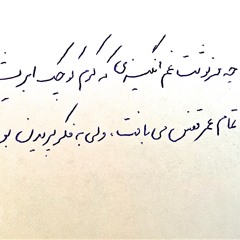 چه سرنوشت غم‌انگیزی که کرم کوچک ابریشم
تمام عمر قفس می‌بافت، ولی به فکر پریدن بو